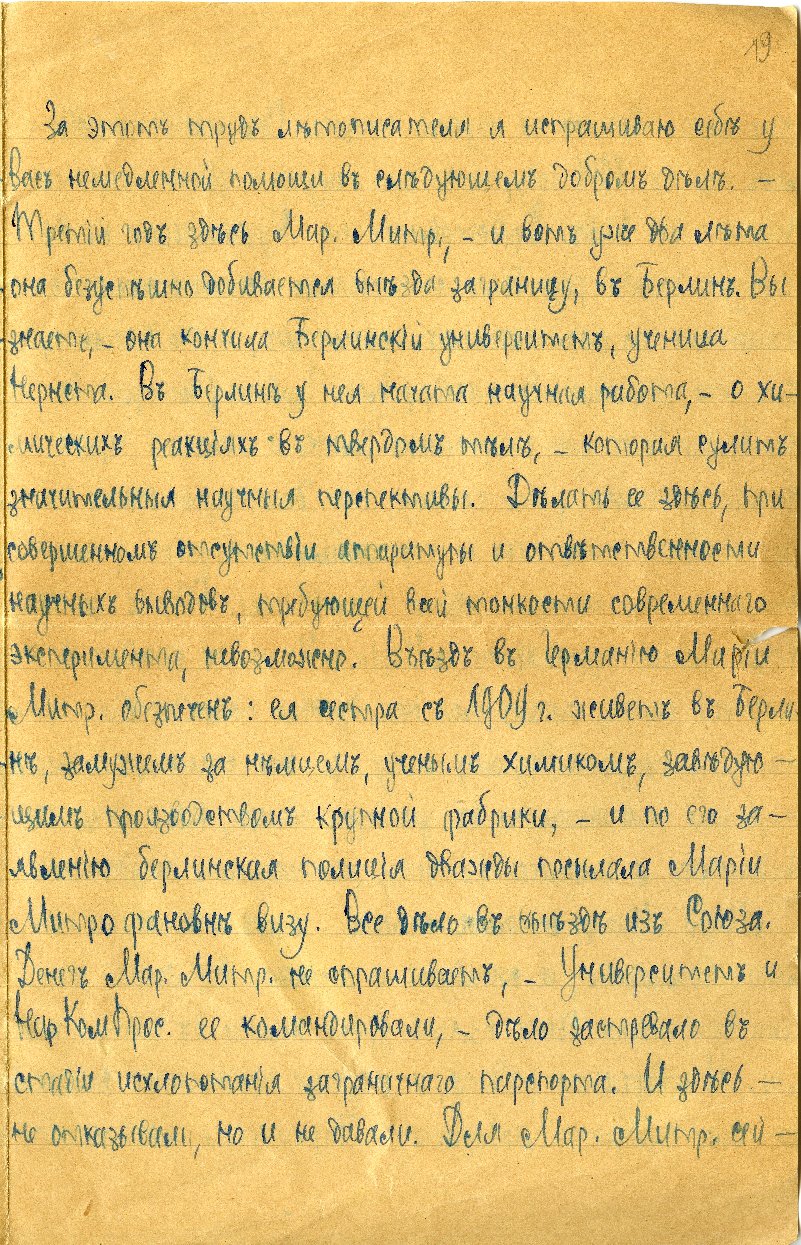 19
За этотъ трудъ лѣтописателя я испрашиваю себѣ у
Васъ немедленной помощи въ слѣдующемъ добромъ дѣлѣ. —
Третій годъ здѣсь Мар. Митр., – и вотъ уже два лѣта
она безуспѣшно добивается выѣзда заграницу, въ Берлинъ. Вы
знаете, – она кончила Берлинскій университетъ, ученица
Нернста. Въ Берлинѣ у нея начата научная работа, – о хи-
мическихъ реакціяхъ въ твердомъ тѣлѣ, – которая сулитъ
значительныя научныя перспективы. Дѣлать ее здѣсь, при
совершенномъ отсутствіи аппаратуры и отвѣтственности
научныхъ выводовъ, требующей всей тонкости современнаго
эксперимента, невозможно. Въѣздъ въ Германію Маріи
Митр. обезпеченъ: ея сестра съ 1904 г. живетъ въ Берли-
нѣ, замужемъ за нѣмцемъ, ученымъ химикомъ, завѣдую-
щимъ производствомъ крупной фабрики, – и по его за-
явленію берлинская полиція дважды посылала Маріи
Митрофановнѣ визу. Все дѣло въ выѣздѣ изъ Союза.
Денегъ Мар. Митр. не спрашиваетъ, – Университетъ и
НарКомПрос. ее командировали, – дѣло застревало въ
стадіи исхлопотанія заграничнаго паспорта. И здѣсь —
не отказывали, но и не давали. Для Мар. Митр. сей-